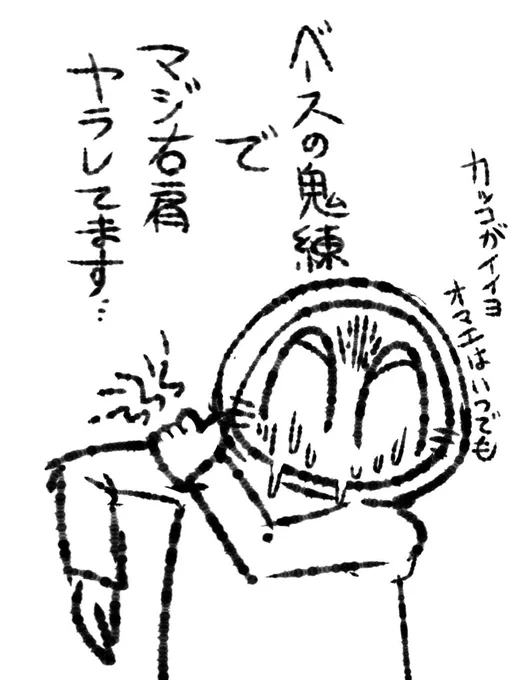 カッコがイイヨ
オマエはいつでも
ベースの鬼練
で
マジ右肩
ヤラレてます…